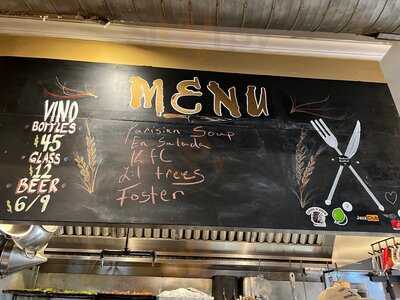 MENU
VINO
BOTTLES
$45
GLASS
$12
BEER
$6/9
Parisien Soup
En Salada
KFC
Lil trees
Foster